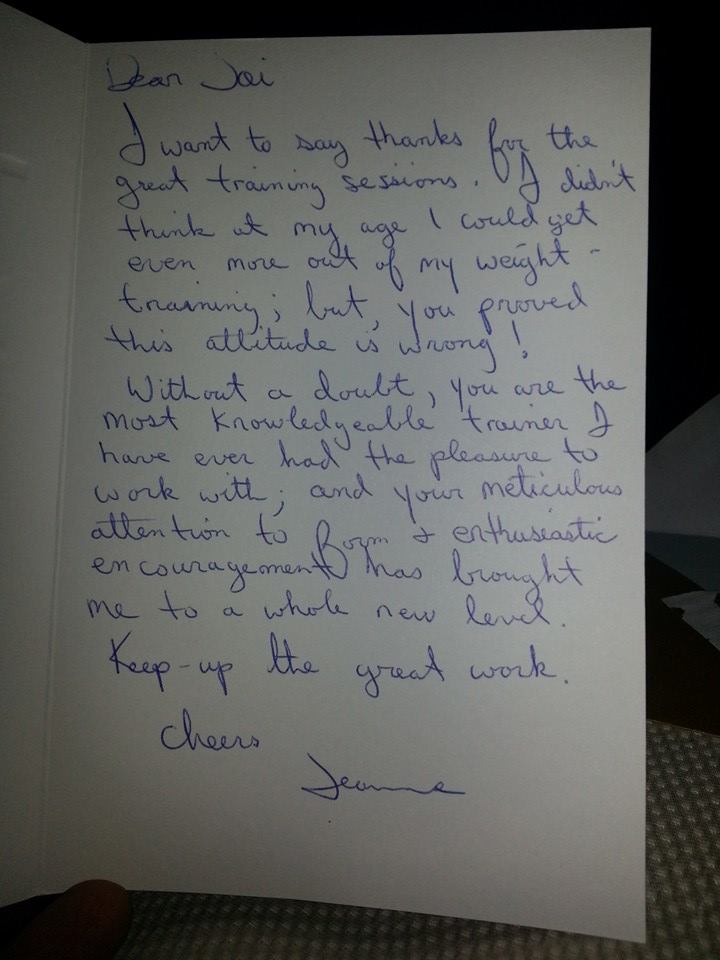 Dear Jai
I want to say thanks for the
great training sessions. I didn't
think at my age I could get
even more out of my weight -
training; but, you proved
this attitude is wrong!
Without a doubt, you are the
most knowledgeable trainer I
have ever had the pleasure to
work with; and your meticulous
attention to form & enthusiastic
encouragement has brought
me to a whole new level.
Keep-up the great work.
Cheers
Jeanne